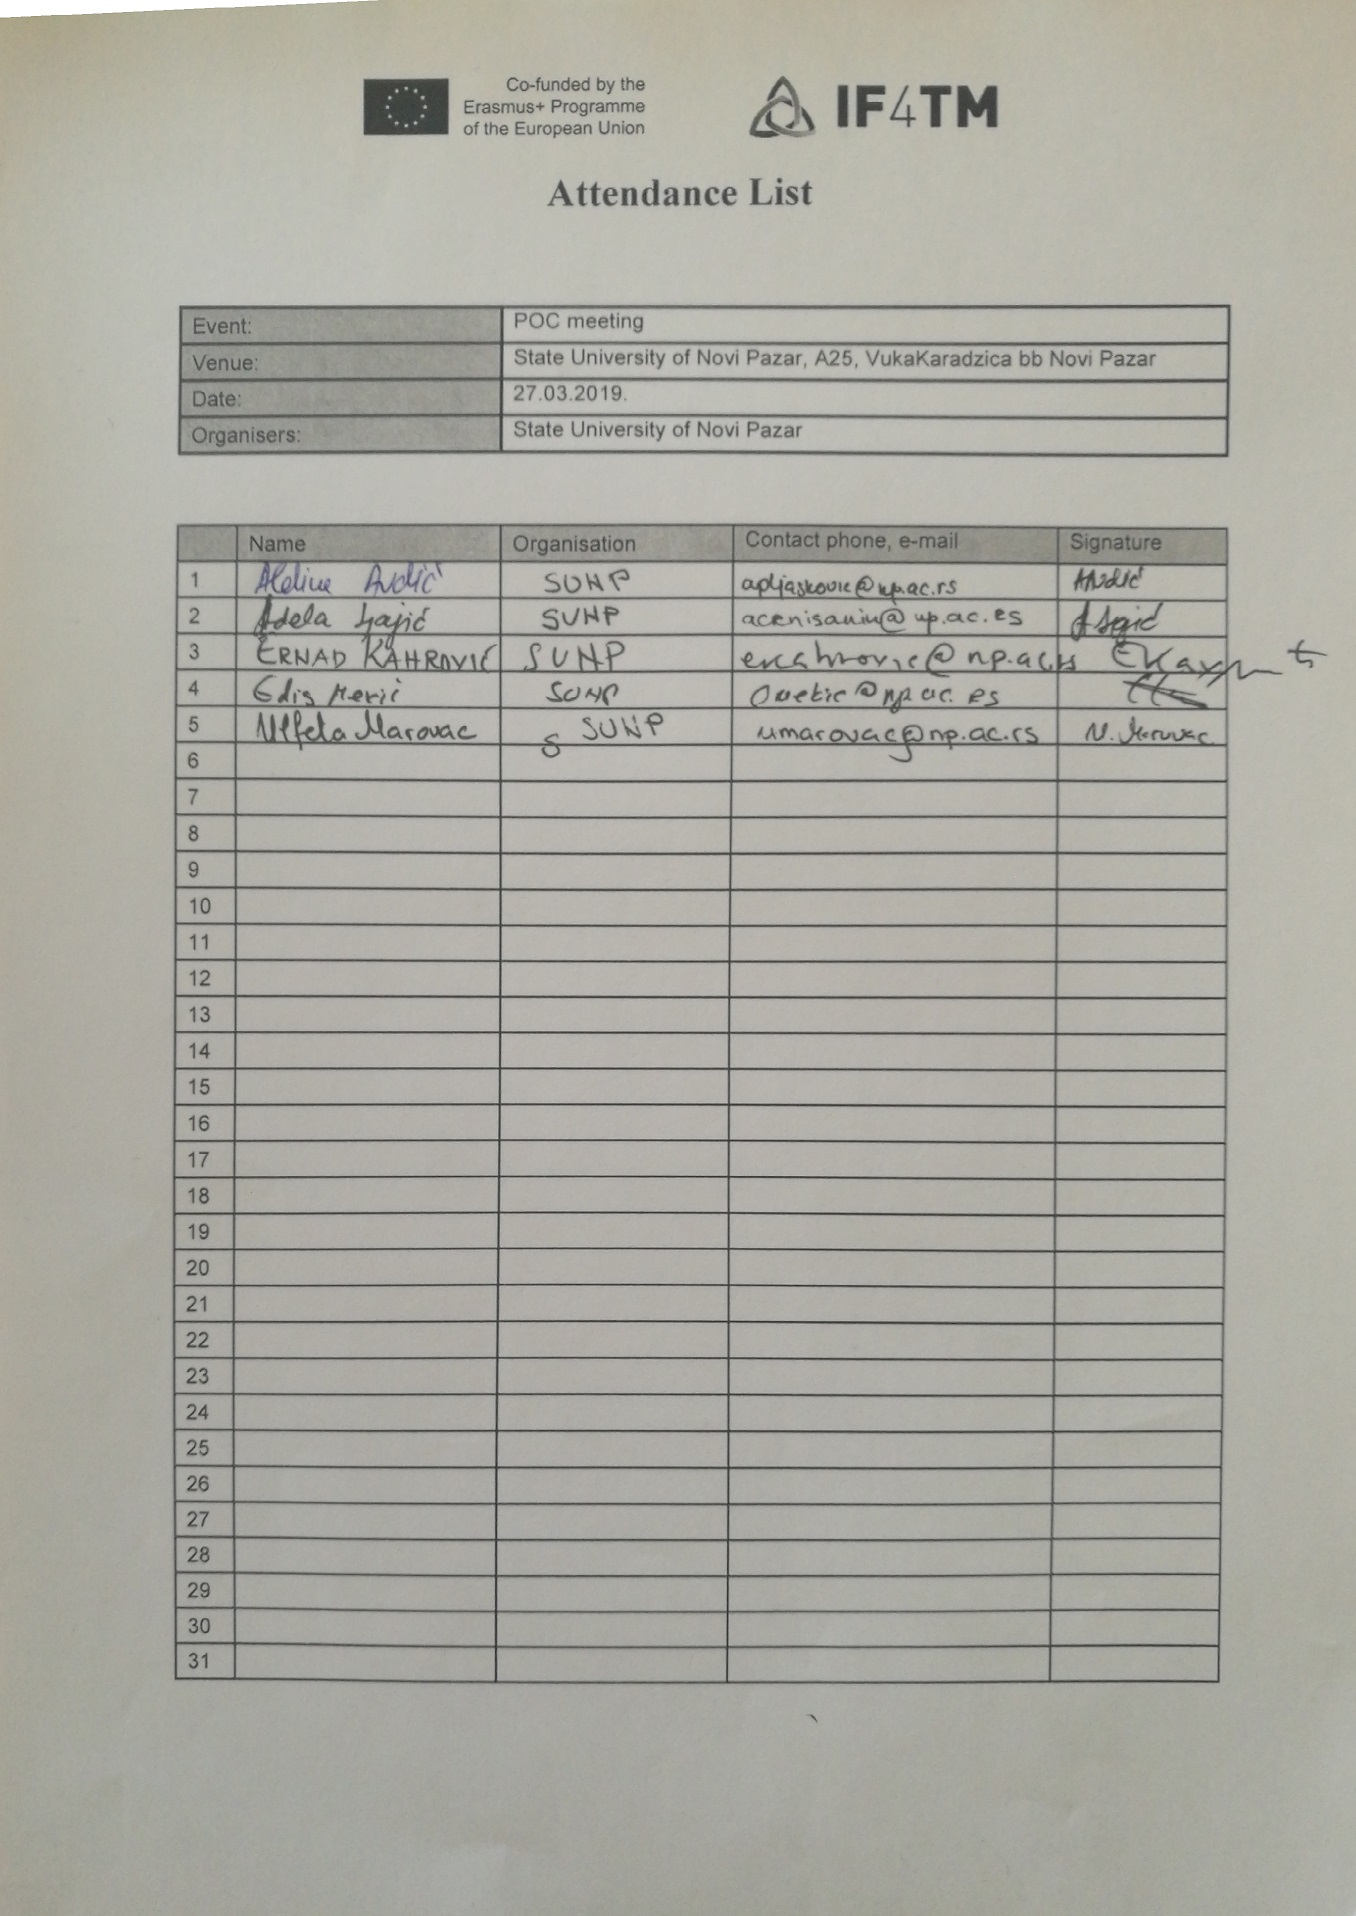 Co-funded by the
Erasmus+ Programme
of the European Union
IF4TM
Attendance List
Event: POC meeting
Venue: State University of Novi Pazar, A25, VukaKaradzica bb Novi Pazar
Date: 27.03.2019.
Organisers: State University of Novi Pazar
Name Organisation Contact phone, e-mail Signature
1 Aldina Avdić SUNP apljaskovic@np.ac.rs Avdić
2 Adela Ljajić SUNP acrnisanin@np.ac.rs
3 ERNAD KAHROVIĆ SUNP ekahrovic@np.ac.rs
4 Edis Mekić SUNP @np.ac.rs
5 Ulfeta Marovac SUNP umarovac@np.ac.rs U. Marovac
6
7
8
9
10
11
12
13
14
15
16
17
18
19
20
21
22
23
24
25
26
27
28
29
30
31